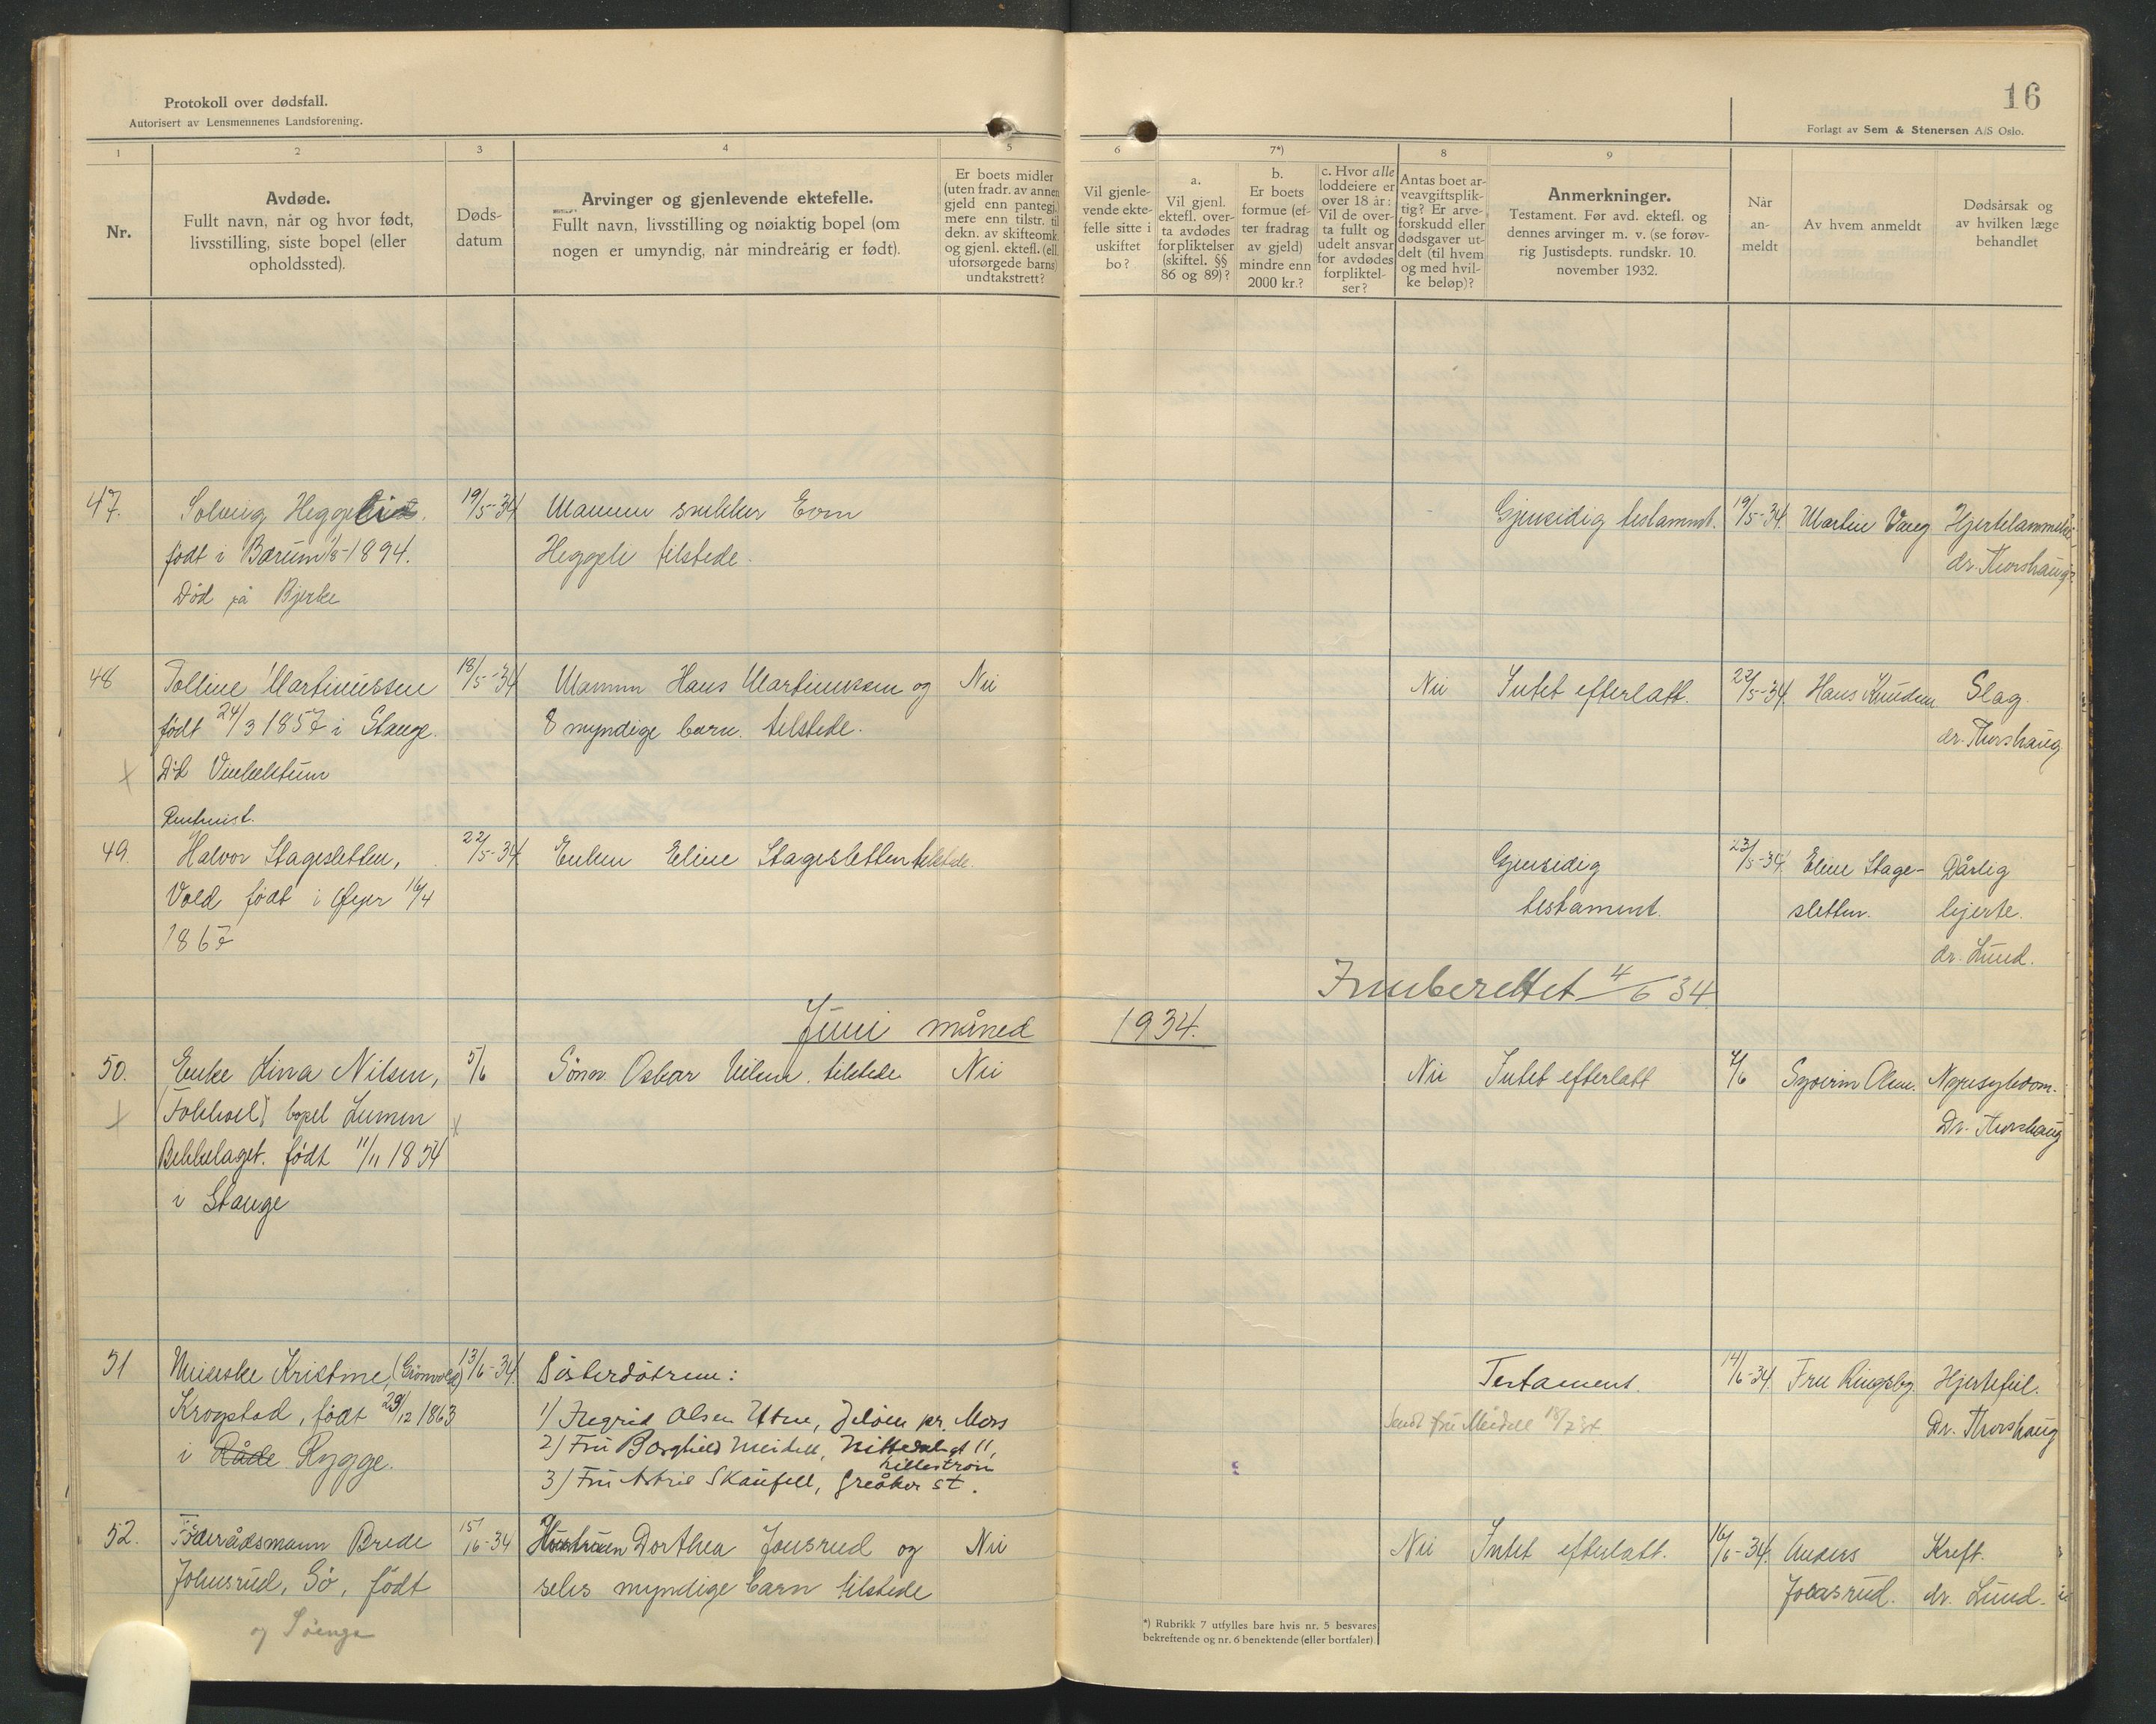 Protokoll over dødsfall.
Autorisert av Lensmennenes Landsforening.
16
Forlagt av Sem & Stenersen A/S Oslo.
1
2
3
4
5
6
7*)
8
9
Nr.
Avdøde.
Fullt navn, når og hvor født,
livsstilling, siste bopel (eller
opholdssted).
Døds-
datum
Arvinger og gjenlevende ektefelle.
Fullt navn, livsstilling og nøiaktig bopel (om
nogen er umyndig, når mindreårig er født).
Er boets midler
(uten fradr. av annen
gjeld enn pantegj.)
mere enn tilstr. til
dekn. av skifteomk.
og gjenl. ektef. (ell.
uforsørgede barns)
undtakstrett?
Vil gjenle-
vende ekte-
felle sitte i
uskiftet
bo?
a.
Vil gjenl.
ektefl. over-
ta avdødes
forpliktelser
(skiftel. §§
86 og 89)?
b.
Er boets
formue (ef-
ter fradrag
av gjeld)
mindre enn
2000 kr.?
c. Hvor alle
loddeiere er
over 18 år:
Vil de over-
ta fullt og
udelt ansvar
for avdødes
forpliktel-
ser?
Antas boet ar-
veavgiftsplik-
tig? Er arve-
forskudd eller
dødsgaver ut-
delt (til hvem
og med hvil-
ke beløp)?
Anmerkninger.
Testament. Før avd. ektefl. og
dennes arvinger m. v. (se forøv-
rig Justisdepts. rundskr. 10.
november 1932.
Når
an-
meldt
Av hvem anmeldt
Dødsårsak og
av hvilken læge
behandlet
47. Solveig Heggeli 19/5-34 Mannen snekker Even Gjensidig testamnt. 19/5-34. Martin Vang Hjertelammelse
født i Bærum 1/8-1894. Heggeli tilstede. dr. Thorshaug
Død på Bjerke
48 Polline Martinussen 18/5-34 Mannen Hans Martinussen og Nei Nei Intet efterlatt. 22/5-34. Hans Knudsen Slag
født 24/3 1857 i Stange. 8 myndige barn. tilstede. dr. Thorshaug
Død
49. Halvor Stagesletten, 22/5-34 Enken Eline Stagesletten tilstede. Gjensidig 23/5-34 Eline Stage- Dårlig
Vold født i Øyer 16/4 testament. sletten. hjerte.
1867 dr. Lund.
Innberettet 4/6 34
Juni måned 1934.
50. Enke Lina Nilsen, 5/6 Sønn Oskar Nilsen. tilstede Nei Nei Intet efterlatt 7/6 Syverin Olsen. Nyresykdom.
bopel Dr. Thorshaug
Bekkelaget. født 11/11 1854
i Stange
51 Kristine, (Grønvold) 13/6-34. Søsterdøtrene: Testament. 14/6-34 Fru Ringsby. Hjertefeil.
Krogstad, født 29/12 1863 1) Ingrid Olsen Utne, Jeløen pr. Moss Sendt fru Meidell Dr. Thorshaug
i Råde Rygge. 2) Fru Borghild Meidell, Nittedalsgt 11,
Lillestrøm
3) Fru Astrid Skaufell, Greåker st.
52. Føderådsmann Brede 15/6-34 Hustruen Dorthea Jonsrud og Nei Nei Intet efterlatt. 16/6-34. Anders Kreft.
Johnsrud, Gò, født seks myndige barn tilstede Jonsrud. dr. Lund.
*) Rubrikk 7 utfylles bare hvis nr. 5 besvares
bekreftende og nr. 6 benektende (eller bortfaler)